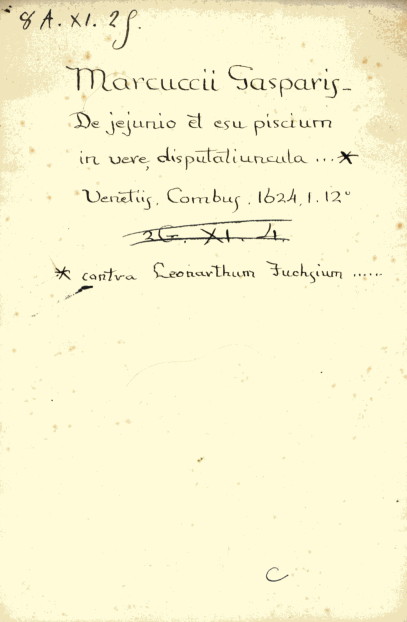 8 A. XI. 25.
Marcuccii Gasparis_
De jejunio et esu piscium
in vere, disputatiuncula ...*
Venetiis, Combus, 1624, 1. 12°
2G. XI. 4.
* contra Leonarthum Fuchsium ......
C